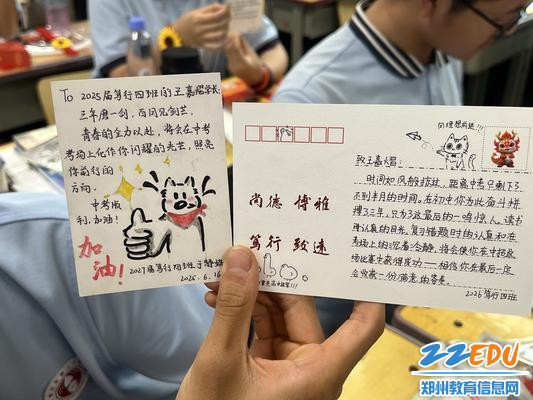 To 2025届笃行四班的王嘉熠学长:
三年磨一剑,西风见剑芒,
青春的全力以赴,将会在中考
考场上化作你闪耀的光芒,照亮
你前行的
方向。
中考顺
利,加油!
加
油!
2027届笃行四班于静涵
2025.6.16
尚德 博雅
笃行 致远
向理想前进!!!
致王嘉熠:
时间如风般掠过,距离中考只剩下了
不到半月的时间,在初中你为此奋斗拼
搏了三年,只为了这最后的一鸣惊人。读书
时认真的目光,复习错题时的认真和在
考场上的沉着冷静,将会使你在中招这
场比赛中获得成功——相信你在最后一定
会收获一份满意的答卷。
2026笃行四班
ZZEDU
郑州教育信息网